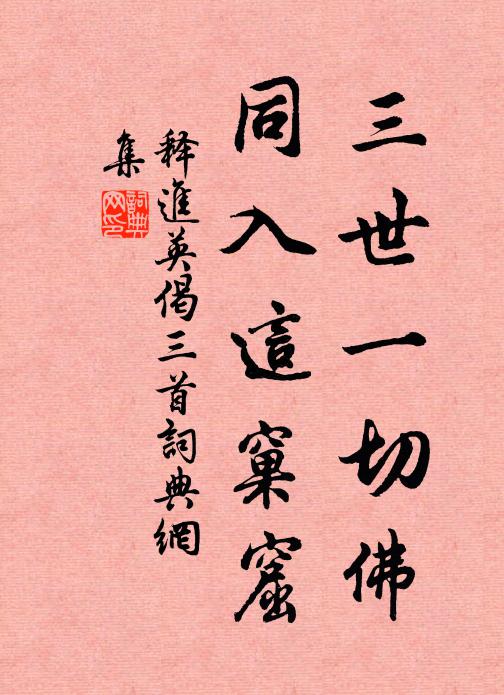 三世一切佛
同入這窠窟
释進英偈三首詞典網
集
詞典網印